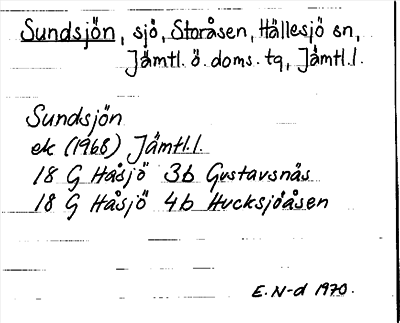 Sundsjön, sjö, Storåsen, Hällesjö sn,
Jämtl. ö. doms. tg, Jämtl. l.
Sundsjön
ek (1968) Jämtl. l.
18 G Håsjö 3b Gustavsnäs
18 G Håsjö 4b Hucksjöåsen
E. N-d 1970.